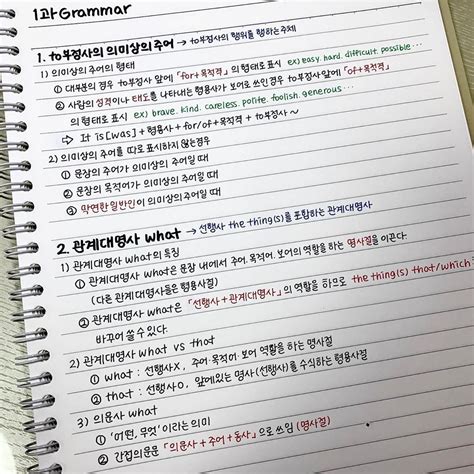 1과 Grammar
1. to부정사의 의미상의 주어 → to부정사의 행위를 행하는 주체
1) 의미상의 주어의 형태
① 대부분의 경우 to부정사 앞에 「for+목적격」의 형태로 표시 ex) easy. hard. difficult. possible ···
② 사람의 성격이나 태도를 나타내는 형용사가 보어로 쓰인 경우 to부정사 앞에 「of+목적격」
의 형태로 표시 ex) brave. kind. careless. polite. foolish. generous ···
⇒ It is[was] + 형용사 + for/of+목적격 + to부정사 ~
2) 의미상의 주어를 따로 표시하지 않는경우
① 문장의 주어가 의미상의 주어일 때
② 문장의 목적어가 의미상의 주어일 때
③ 막연한 일반인이 의미상의 주어일 때
2. 관계대명사 what → 선행사 the thing(s)를 포함하는 관계대명사
1) 관계대명사 what의 특징
① 관계대명사 what은 문장 내에서 주어. 목적어. 보어의 역할을 하는 명사절을 이끈다.
(다른 관계대명사들은 형용사절)
② 관계대명사 what은 「선행사+관계대명사」의 역할을 하므로 the thing(s) that/which로
바꾸어 쓸 수 있다.
2) 관계대명사 what vs that
① what : 선행사X, 주어·목적어·보어 역할을 하는 명사절
② that : 선행사O, 앞에있는 명사(선행사)를 수식하는 형용사절
3) 의문사 what
① '어떤, 무엇'이라는 의미
② 간접의문문 「의문사+주어+동사」으로 쓰임 (명사절)